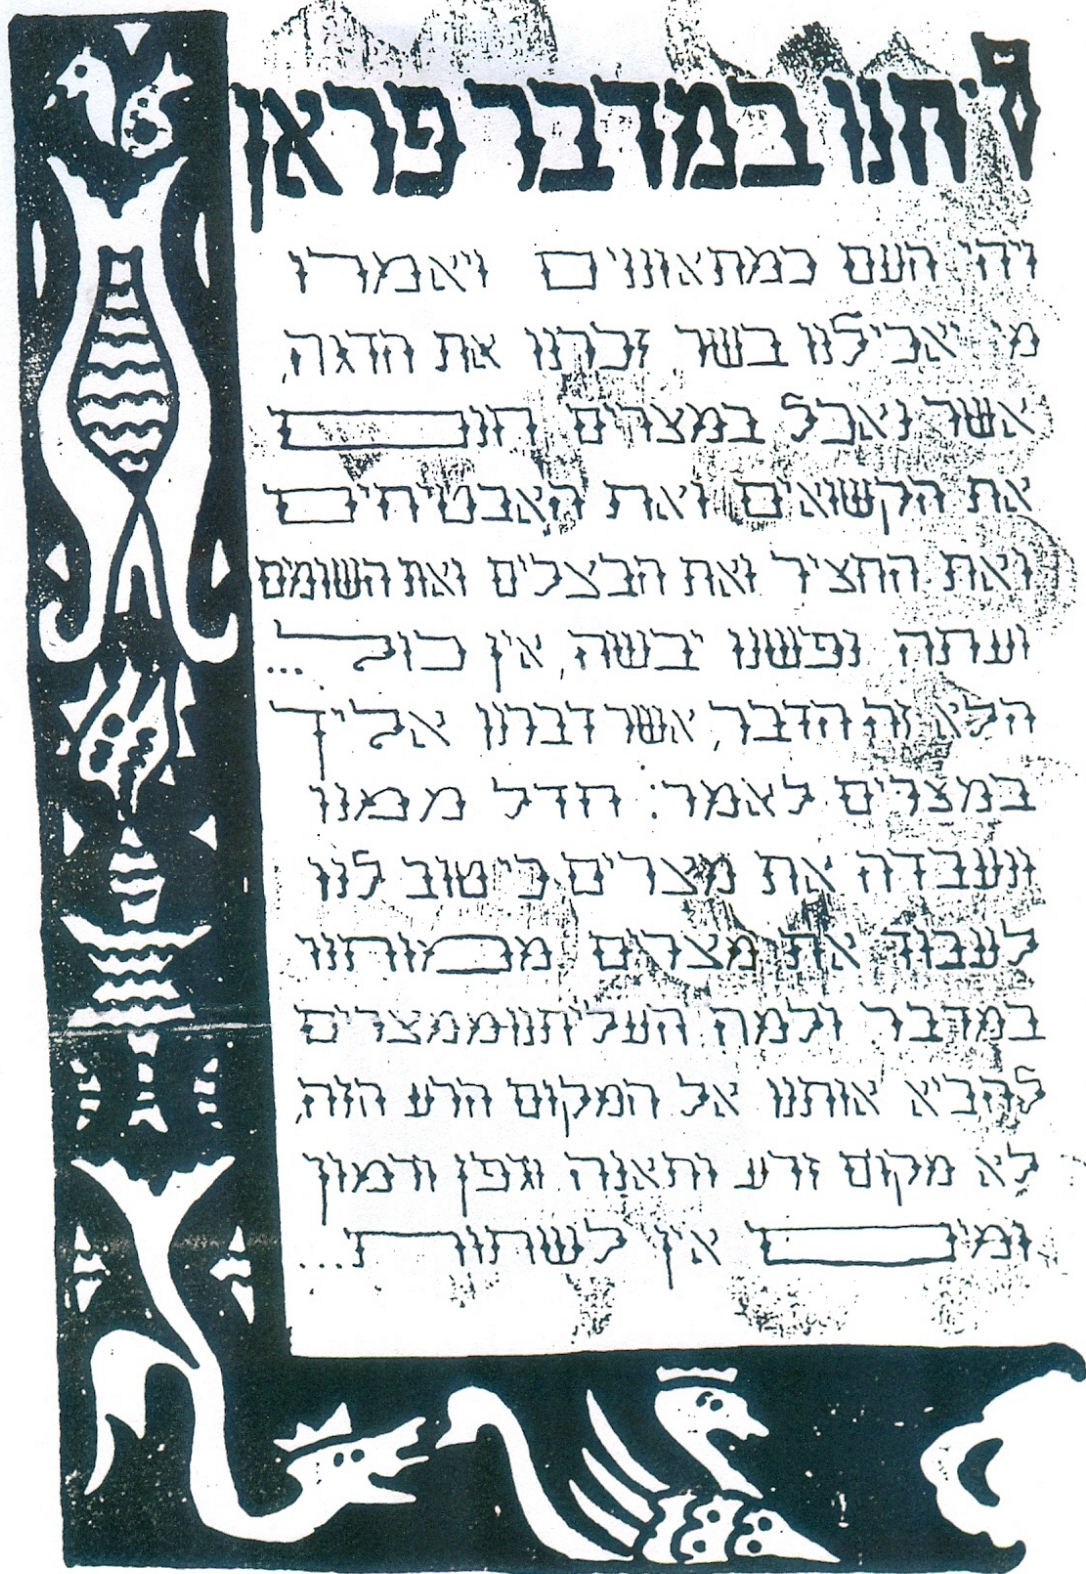 ויחנו במדבר פראן
ויהי העם כמתאוננים ויאמרו
מי יאכילנו בשר זכרנו את הדגה,
אשר נאכל במצרים חנם
את הקשואים ואת האבטיחים
ואת החציר ואת הבצלים ואת השומים
ועתה נפשנו יבשה, אין כול ...
הלא זה הדבר, אשר דברנו אליך
במצרים לאמר: חדל ממנו
ונעבדה את מצרים כי טוב לנו
לעבוד את מצרים ממותנו
במדבר ולמה העליתנו ממצרים
להביא אותנו אל המקום הרע הזה,
לא מקום זרע ותאנה וגפן ורמון
ומים אין לשתות...